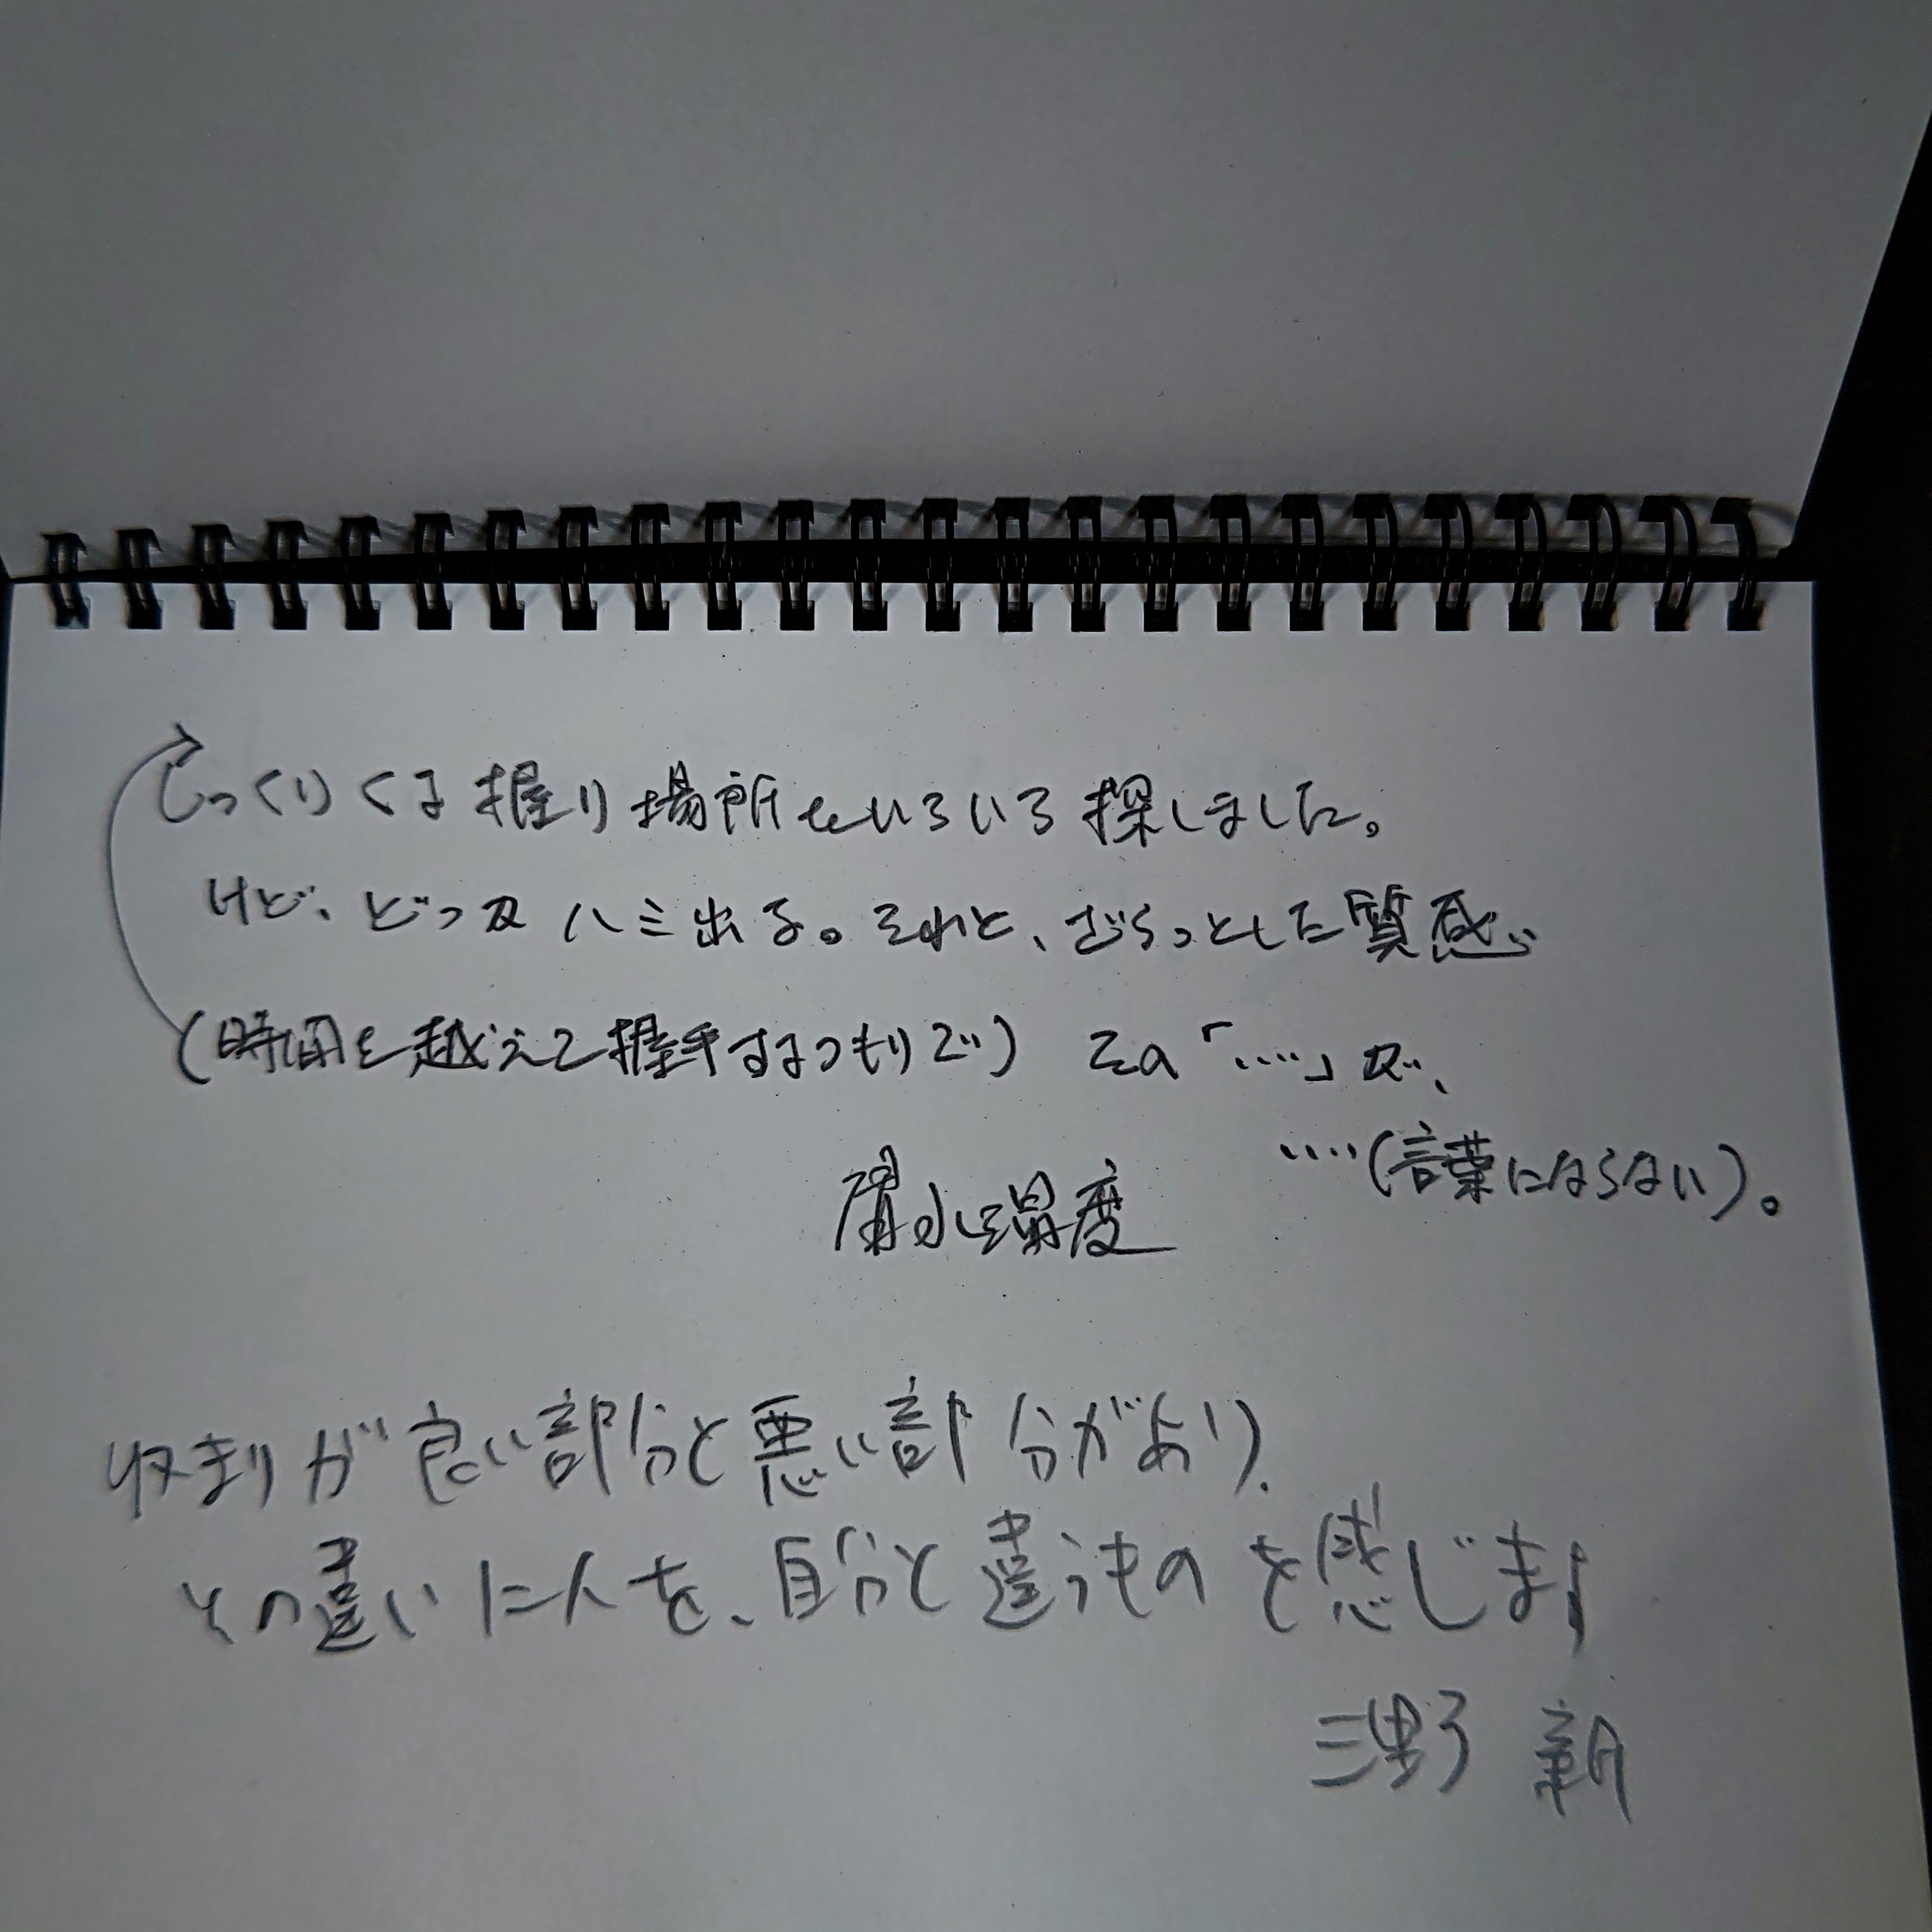 しっくりくる握り場所をいろいろ探しました。
けど、どっかハミ出る。それと、ざらっとした質感。
(時間を越えて握手するつもりで) その「‥‥」が、
‥‥(言葉にならない)。
温度
収まりが良い部分と悪い部分があり、
その違いに人を、自分と違うものを感じます
三野 新